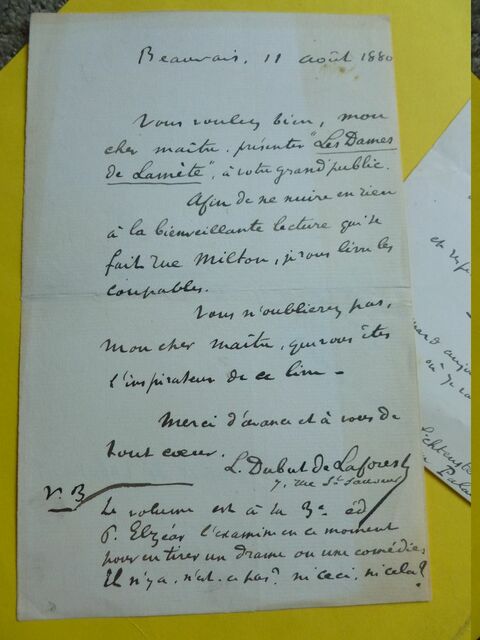 Beauvais, 11 août 1880
Vous voulez bien, mon
cher maître, présenter "Les Dames
de Lamète", à votre grand public.
Afin de ne nuire en rien
à la bienveillante lecture qui se
fait rue Milton, je vous livre les
coupables.
Vous n'oublierez pas,
mon cher maître, que vous êtes
l'inspirateur de ce livre –
Merci d'avance et à vous de
tout cœur.
L. Dubut de Laforest
7, rue St Sauveur
N. B
Le volume est à la 3e éd
P. Elzéar l'examine en ce moment
pour en tirer un drame ou une comédie
Il n'y a, n'est-ce pas? ni ceci, ni cela?
et